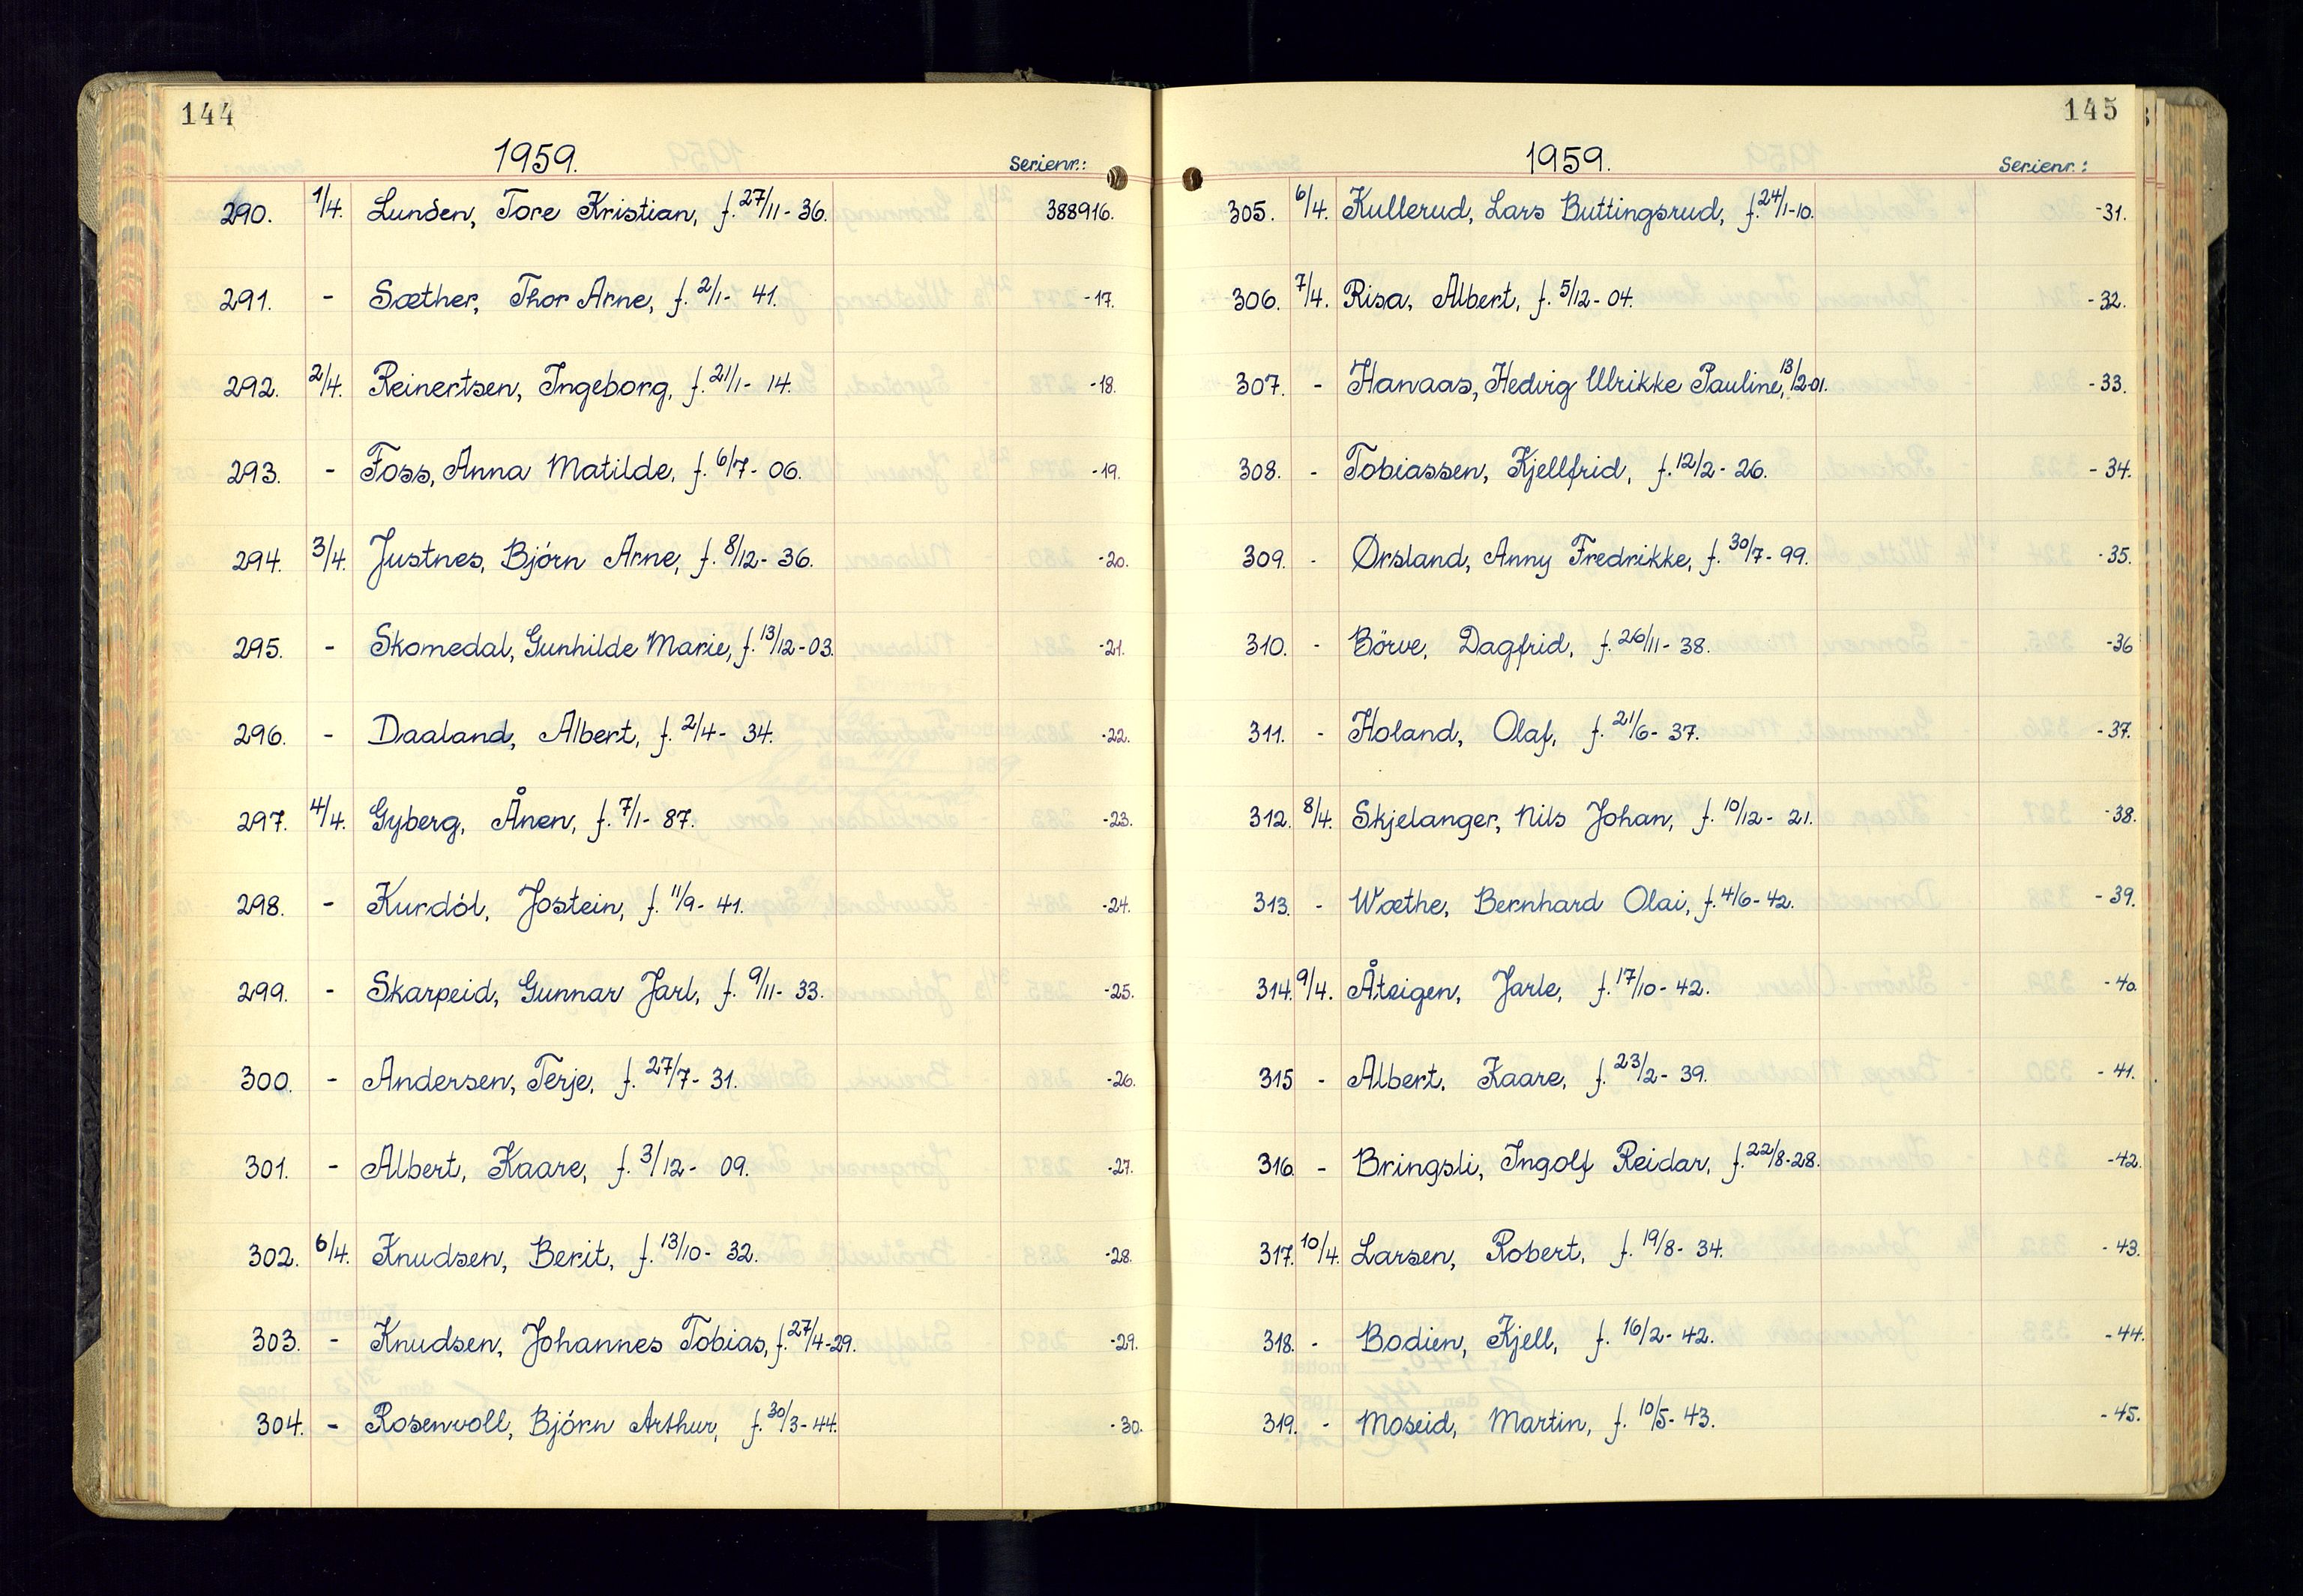 144
1959. Serienr.:
290. 1/4. Lunden, Tore Kristian, f. 27/11- 36. 388916.
291. - Sæther, Thor Arne, f. 2/1- 41. -17.
292. 2/4. Reinertsen, Ingeborg, f. 21/1- 14. -18.
293. - Foss, Anna Matilde, f. 6/7- 06. -19.
294. 3/4. Justnes, Björn Arne, f. 8/12- 36. -20.
295. - Skomedal, Gunhilde Marie, f. 13/12-03. -21.
296. - Daaland, Albert, f. 2/4- 34. -22.
297. 4/4. Gyberg, Ånen, f. 7/1- 87. -23.
298. - Kurdöl, Jostein, f. 11/9- 41. -24.
299. - Skarpeid, Gunnar Jarl, f. 9/11- 33. -25.
300. - Andersen, Terje, f. 27/7- 31. -26.
301. - Albert, Kaare, f. 3/12- 09. -27.
302. 6/4. Knudsen, Berit, f. 13/10- 32. -28.
303. - Knudsen, Johannes Tobias, f. 27/4-29. -29.
304. - Rosenvoll, Björn Arthur, f. 30/3-44. -30.
145
1959. Serienr.:
305. 6/4. Kullerud, Lars Buttingsrud, f. 24/1-10. -31.
306. 7/4. Risa, Albert, f. 5/12- 04. -32.
307. - Hanaas, Hedvig Ulrikke Pauline, 13/12-01. -33.
308. - Tobiassen, Kjellfrid, f. 12/2- 26. -34.
309. - Ørsland, Anny Fredrikke, f. 30/7- 99. -35.
310. - Börve, Dagfrid, f. 26/11- 38. -36
311. - Holand, Olaf, f. 21/6- 37. -37.
312. 8/4. Skjelanger, Nils Johan, f. 10/12- 21. -38.
313. - Wæthe, Bernhard Olai, f. 4/6-42. -39.
314. 9/4. Åteigen, Jarle, f. 17/10- 42. -40.
315 - Albert, Kaare, f. 23/2- 39. -41.
316. - Bringsli, Ingolf Reidar, f. 22/8-28. -42.
317. 10/4. Larsen, Robert, f. 19/8- 34. -43.
318. - Bodien, Kjell, f. 16/2- 42. -44.
319. - Moseid, Martin, f. 10/5- 43. -45.